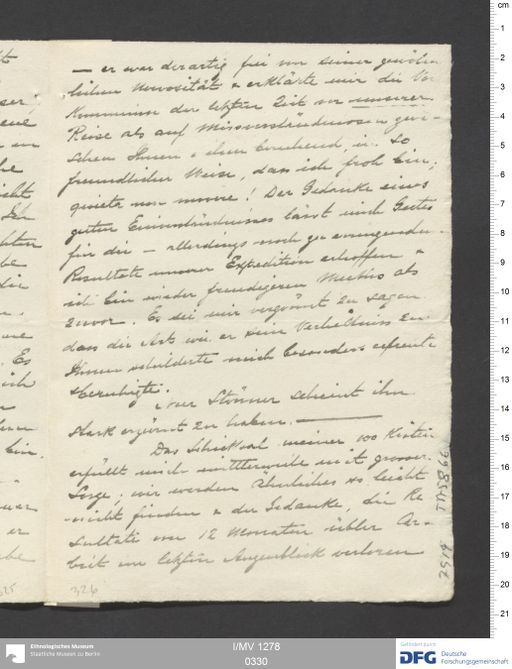 — er war derartig frei von seiner gewöhn-
lichen Nervosität & erklärte mir die Vor
Kommnisse der letzten Zeit vor unserer
Reise als auf Missverständnissen zwi-
schen Ihnen & ihm beruhend, in so
freundlicher Weise, dass ich froh bin,
quieta non movere! Der Gedanke eines
guten Einverständnisses lässt mich Gutes
für die — allerdings noch zu erringenden
Resultate unserer Expedition erhoffen &
ich bin wieder freudigeren Muthes als
zuvor. Es sei mir vergönnt zu sagen
dass die Art wie er sein Verhältniss zu
Ihnen schilderte mich besonders erfreute
& beruhigte.
Nur Stönner scheint ihn
stark erzürnt zu haben. —
Das Schicksal meiner 100 Kisten
erfüllt mich mittlerweile mit grosser
Sorge; wir werden Aehnliches so leicht
nicht finden & der Gedanke, die Re
sultate von 12 Monaten übler Ar-
beit im letzten Augenblick verloren
326
I/MV 1278
0330
Ethnologisches Museum
Staatliche Museen zu Berlin
Gefördert durch
DFG Deutsche
Forschungsgemeinschaft
cm
1
2
3
4
5
6
7
8
9
10
11
12
13
14
15
16
17
18
19
20
21